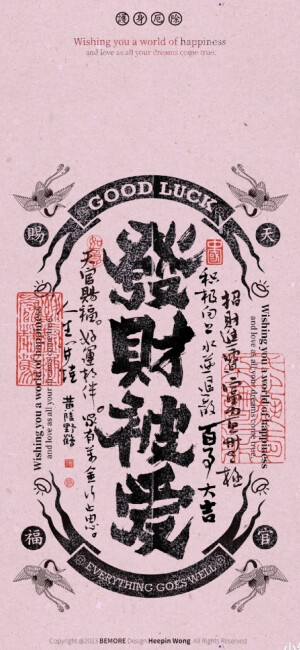 護身厄除
Wishing you a world of happiness
and love as all your dreams come true.
GOOD LUCK
賜
天
發財被愛
招財進寶富勇無極
積極向上水逆退散百事大吉
天官賜福好運相伴
Wishing you a world of happiness
and love as all your dreams come true.
Wishing you a world of happiness
and love as all your dreams come true.
福
官
EVERYTHING GOES WELL
Copyright @2023 BEMORE Design Heepin Wong All Rights Reserved